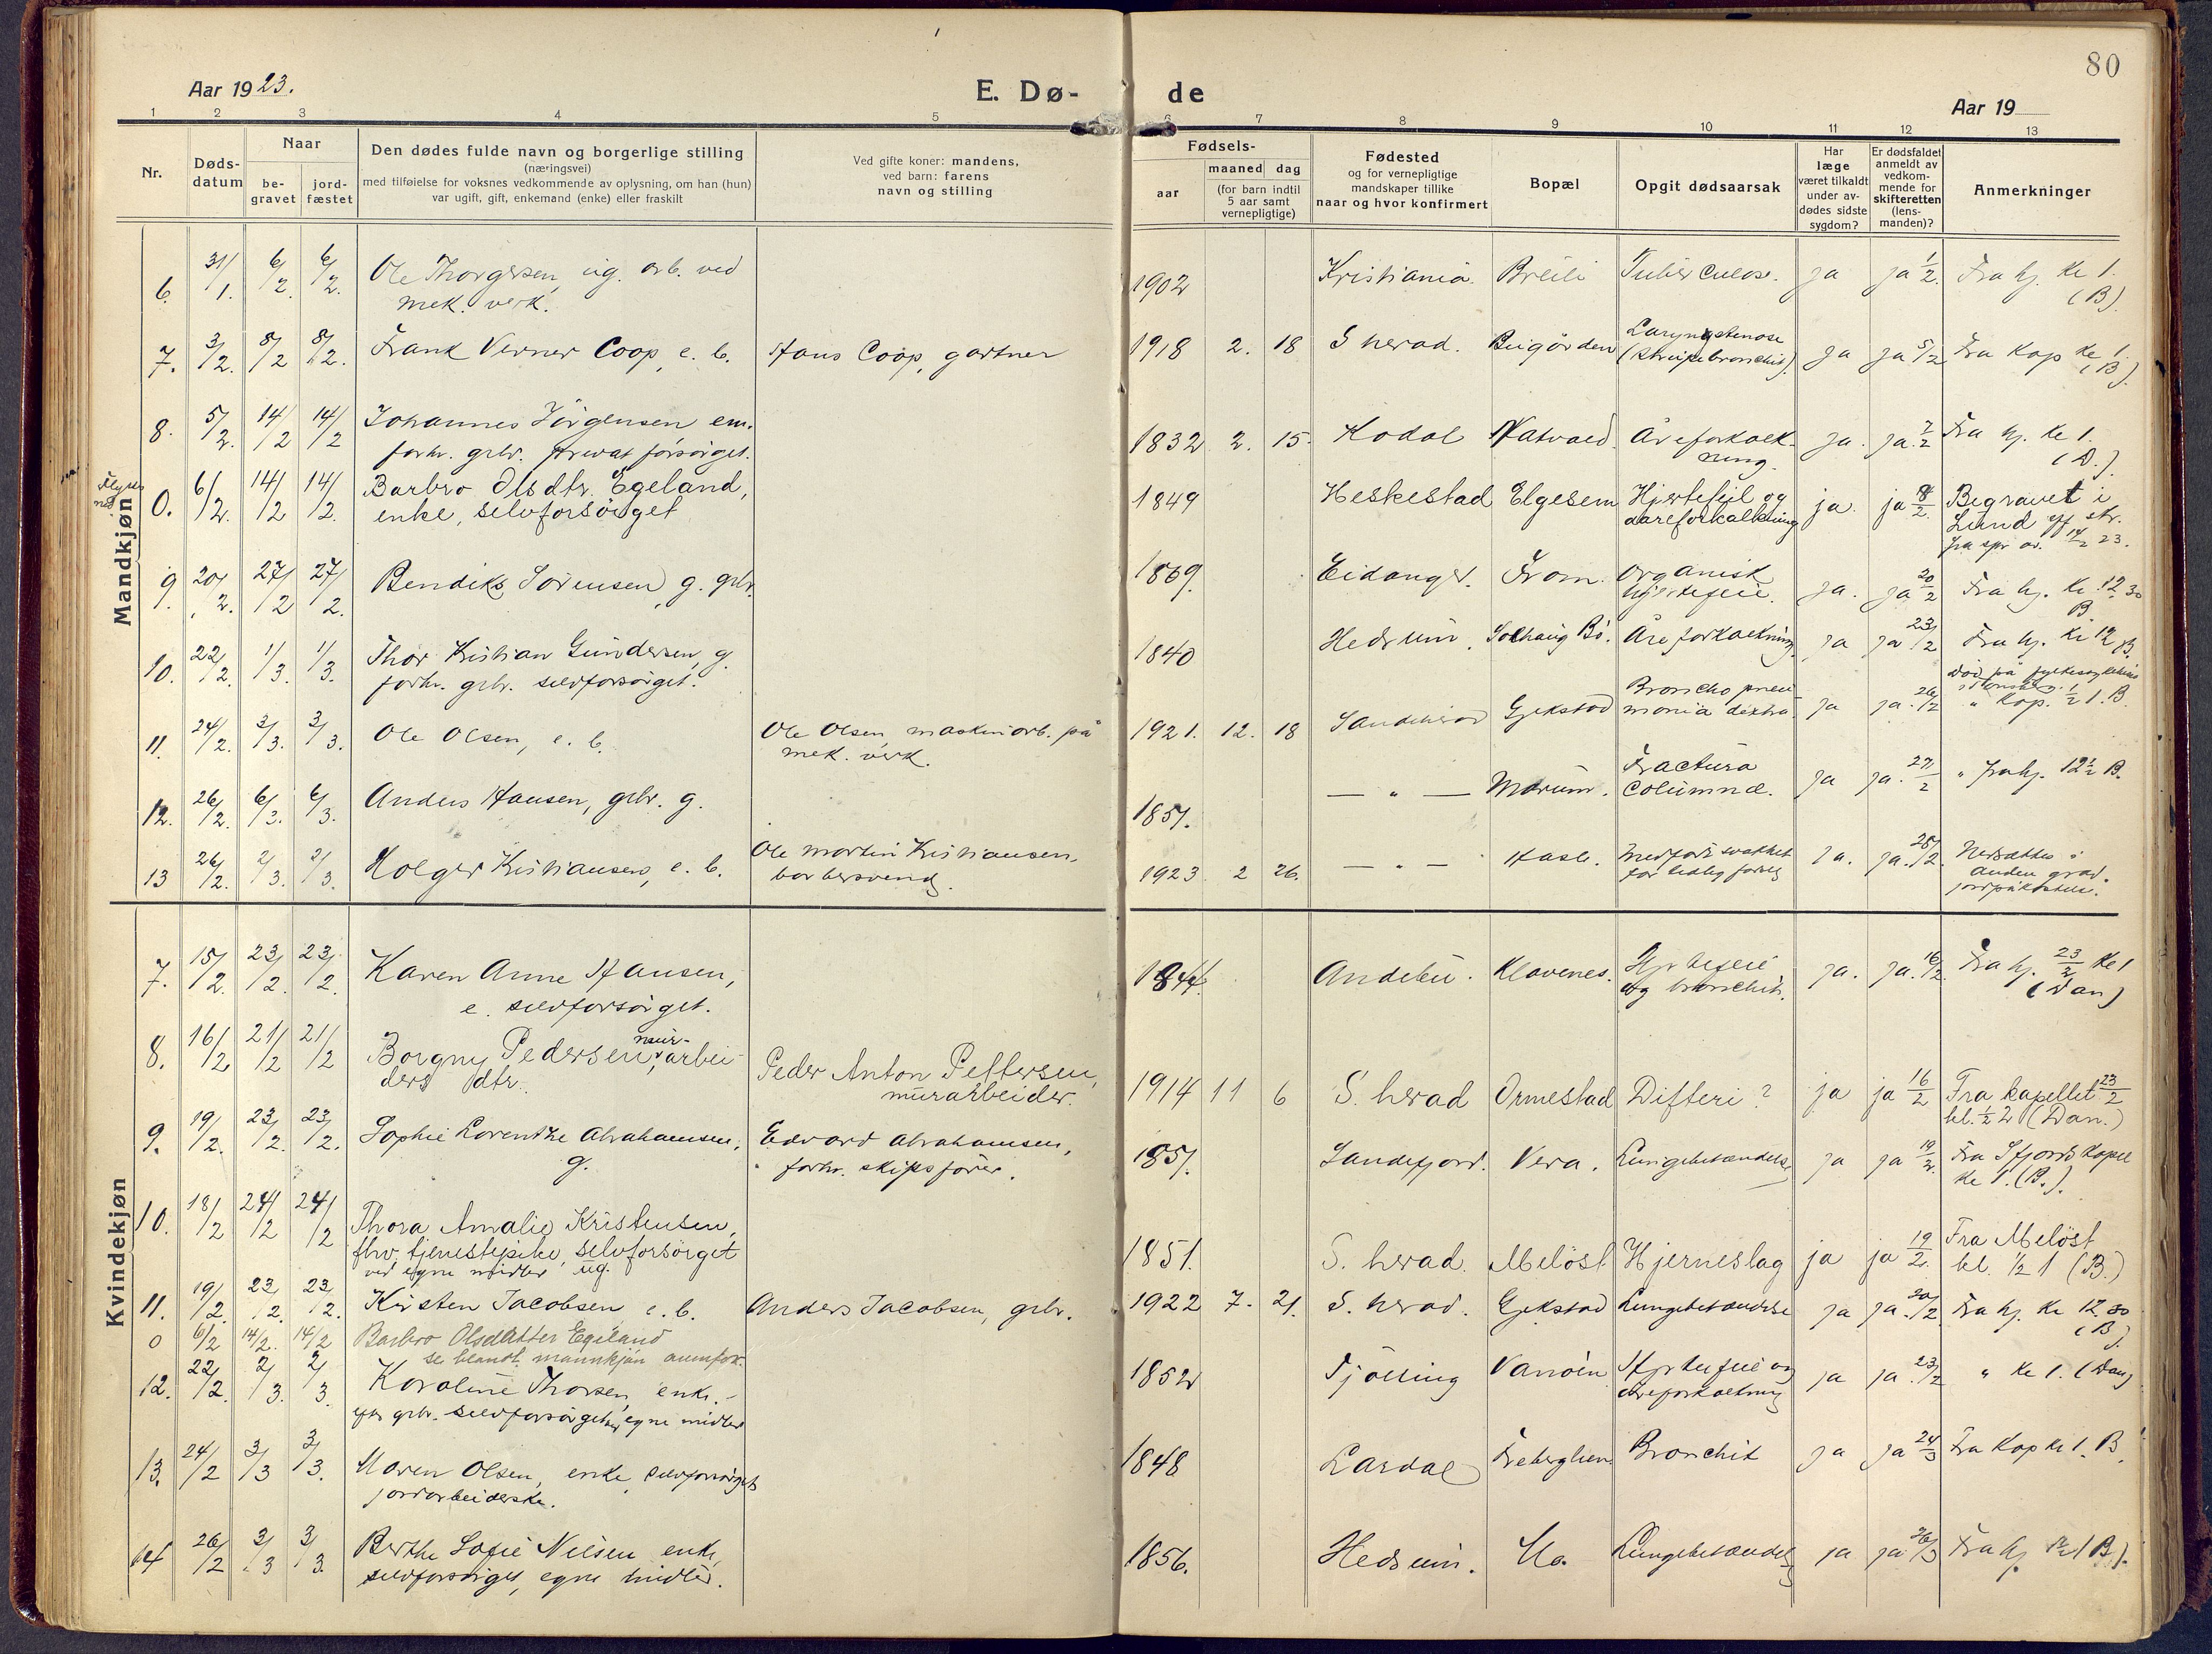 80
Aar 1923.
E. Dø-
de
Aar 19
1 2 3 4 5 6 7 8 9 10 11 12 13
Nr.
Døds-
datum
Naar
be-
gravet
jord-
fæstet
Den dødes fulde navn og borgerlige stilling
(næringsvei)
med tilføielse for voksnes vedkommende av oplysning, om han (hun)
var ugift, gift, enkemand (enke) eller fraskilt
Ved gifte koner: mandens,
ved barn: farens
navn og stilling
Fødsels-
aar
maaned dag
(for barn indtil
5 aar samt
vernepligtige)
Fødested
og for vernepligtige
mandskaper tillike
naar og hvor konfirmert
Bopæl
Opgit dødsaarsak
Har
læge
været tilkaldt
under av-
dødes sidste
sygdom?
Er dødsfaldet
anmeldt av
vedkom-
mende for
skifteretten
(lens-
manden)?
Anmerkninger
Mandkjøn
6. 31/1. 6/2. 6/2. Ole Thorgersen, ug. arb. ved
mek. verk.
1902 Kristiania. Breili Tuberculose. ja ja 1/2. Fra hj. kl 1.
(B).
7. 3/2. 8/2 8/2. Frank Verner Coop, e. b. Hans Coop, gartner
1918 2. 18 S herad. Bugården Laryngstenose
(Strupebronchit). ja ja 5/2 Fra kap kl 1.
(B).
8. 5/2. 14/2 14/2 Johannes Jörgensen em.
forh. grbr. privat forsörget.
1832 2. 15. Kodal Natvald Åreforkalk-
ning. ja. ja. 7/2 Fra hj. kl 1.
(D.).
0. 6/2. 14/2 14/2. Barbro Olsdtr. Egeland,
enke, selvforsörget
1849 Heskestad Elgesem Hjertefeil og
aareforkalkning ja. ja 8/2. Begravet i
Lund
9. 20/2. 27/2 27/2. Bendiks Sörensen, g. grbr.
1869. Eidanger. Fram. Organisk
hjertefeil. ja. ja 20/2 Fra hj. kl 12.30
B.
10. 22/2. 1/3. 1/3. Thor Kristian Gundersen, g.
forh. grbr. selvforsörget.
1840 Hedrum. Solhaug Bö. Åreforkalkning ja ja 23/2 Fra hj. kl 12 B.
11. 24/2. 3/3. 3/3. Ole Olsen, e. b. Ole Olsen, maskinarb. på
mek. verk.
1921. 12. 18 Sandeherad Gjekstad Broncho pneu-
monia dextra. ja ja. 26/2 Död på
" kap. 1/2 1. B
12. 26/2. 6/3. 6/3. Anders Hansen, grbr. g.
1857. — " — Marum. Fractura
Columnæ. ja ja. 27/2 " fra hj. 12 1/2 B.
13 26/2. 2/3. 2/3. Holger Kristiansen, e. b. Ole Martin Kristiansen,
barbersvend.
1923 2 26. — " — Hasle. Medfödt svakhet
for tidlig födsel ja. ja. 28/2. Nedsattes i
anden grad.
jordpåkastelse.
Kvindekjøn
7. 15/2. 23/2. 23/2. Karen Anne Hansen,
e. selvforsörget.
1844. Andebu. Klavenes. Hjertefeil
og bronchit. ja. ja. 16/2 Fra hj. 23/2 kl 1
(Dan)
8. 16/2 21/2 21/2 Borgny Pedersen, mur-arbei-
ders dtr. Peder Anton Pettersen,
murarbeider.
1914 11 6 S. herad Ormestad Difteri? ja ja 16/2 Fra kapellet 23/2
kl. 1/2 2 (Dan.)
9. 19/2. 23/2. 23/2. Sophie Lorentze Abrahamsen,
g. Edvard Abrahamsen,
forhv. skipsförer.
1857. Sandefjord. Vera. Lungebetændelse ja ja 19/2. Fra Sfjords kapel
kl 1. (B.).
10. 18/2 24/2 24/2 Thora Amalie Kristensen,
fhv. tjenestepike, selvforsörget
ved egne midler ug.
1851. S. herad. Melöst Hjerneslag ja ja 19/2. Fra Melöst
kl. 1/2 1 (B.)
11. 19/2. 23/2. 23/2. Kirsten Jacobsen, e. b. Anders Jacobsen, grbr.
1922 7. 21. S. herad. Gjekstad Lungebetændelse ja ja. 20/2 Fra hj. kl 12.30
(B).
0 6/2 14/2. 14/2 Barbro Olsdatter Egeland
se blandt mannkjön
12. 22/2. 2/3. 2/3 Karoline Thorsen, enke.
efter grbr. selvforsörget egne midler
1852 Tjölling Hjertefeil og
åreforkalkning ja ja. 23/2 " kl 1. (Dan)
13. 24/2 3/3 3/3. Maren Olsen, enke, selvforsörget
jordarbeiderske.
1848 Lardal Bronchit ja ja 24/3 Fra kap kl 1. B.
14 26/2 3/3 3/3. Berthe Sofie Nilsen enke,
selvforsörget, egne midler.
1856. Hedrum. Lungebetændelse ja ja 26/3 Fra hj. kl 1 B).